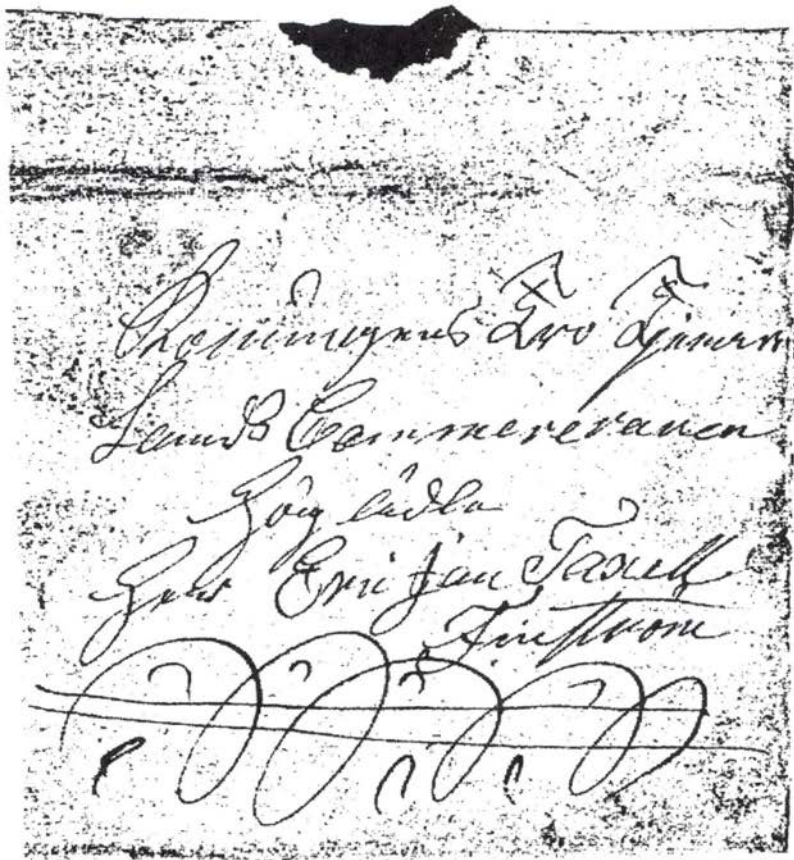 Konungens Tro Tjenare
Lands Cammereraren
Hög ädla
Herr Eric Jan Taxell
Finström